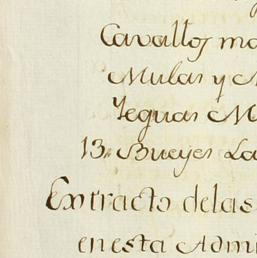 Cavallos ma
Mulas y M
Yeguas M
13. Bueyes La
Extracto delas
enesta Admi